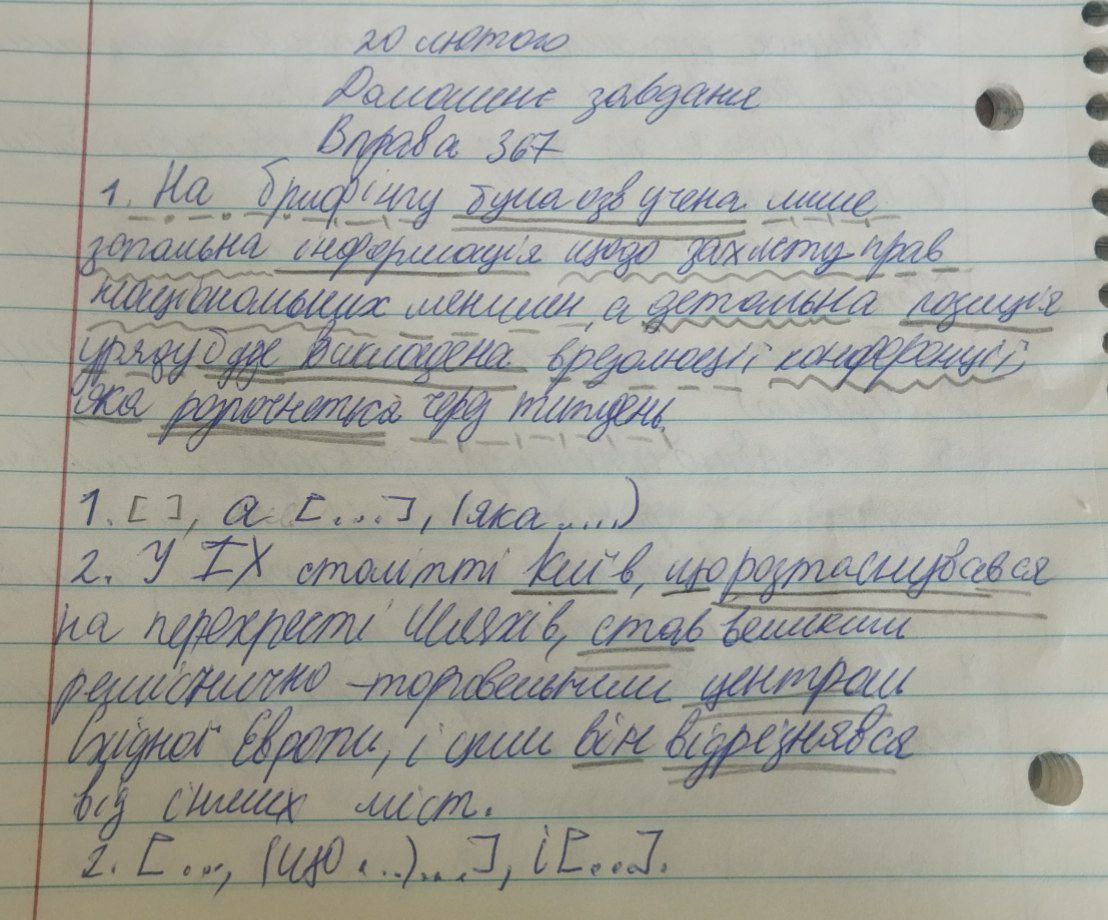 20 лютого
Домашнє завдання
Вправа 367
1. На брифінгу була озвучена лише
загальна інформація щодо захисту прав
національних меншин, а детальна позиція
уряду буде викладена в резолюції конференції,
яка розпочнеться через тиждень.
1. [ ], а [...], (яка ....)
2. У ІХ столітті Київ, що розташовувався
на перехресті шляхів, став великим
ремісничо-торговельним центром
Східної Європи, і цим він відрізнявся
від інших міст.
2. [..., (що ...)...], і [...].